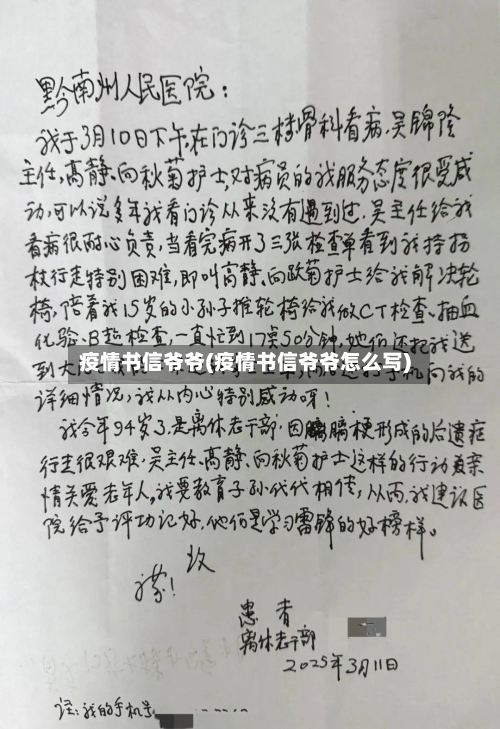 黔南州人民医院：
我于3月10日下午,在门诊三楼骨科看病,吴锦隆
主任,高静,向秋菊护士,对病员的我服务态度很受感
动,可以说多年我看门诊从来没有遇到过,吴主任给我
看病很耐心负责,当看完病开了三张检查单看到我拄拐
杖行走特别困难,即叫高静,向秋菊护士给我解决轮
椅,陪着我15岁的小孙子推轮椅给我做CT检查,抽血
化验,B超检查,一直忙到17点50分钟,她们还把我送
疫情书信爷爷(疫情书信爷爷怎么写)
到大 手机向我的
详细情况,我从内心特别感动呀!
我今年94岁了,是离休老干部,因 梗形成的后遗症
行走很艰难,吴主任,高静,向秋菊护士这样的行动,
情关爱老年人,我要教育子孙代代相传,从而,我建议医
院给予评功记好,他们是学习雷锋的好榜样。
致
患者
离休老干部
2025年3月11日
注:我的手机号